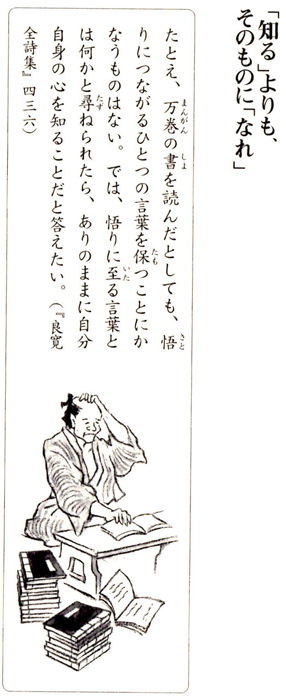 「知る」よりも、
そのものに「なれ」
たとえ、万巻の書を読んだとしても、悟
りにつながるひとつの言葉を保つことにか
なうものはない。では、悟りに至る言葉と
は何かと尋ねられたら、ありのままに自分
自身の心を知ることだと答えたい。（『良寛
全詩集』四三六）